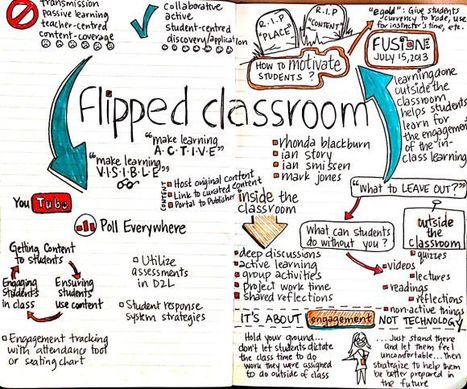 transmission
passive learning
teacher-centred
content-coverage
collaborative
active
student-centred
discovery/application
R.I.P
"PLACE"
R.I.P
"CONTENT"
HOW TO motivate
STUDENTS?
"egold": Give students
currency to trade, use
for instructor's time, etc.
FUSION
JULY 15, 2013
learning done
outside the
classroom
helps students
learn for
the engagement
of the "in-
class learning
Flipped classroom
"make learning
A·C·T·I·V·E"
"make learning
V·I·S·I·B·L·E"
rhonda blackburn
ian story
ian smissen
mark jones
CONTENT
Host original content
Link to curated content
Portal to Publisher
YouTube
Poll Everywhere
Getting Content
to students
Engaging
Students
in class
Ensuring
students
use content
Utilize
assessments
in D2L
Student response
system strategies
Engagement tracking
with attendance tool
or seating chart
inside the
classroom
deep discussions
active learning
group activities
project work time
shared reflections
"What to LEAVE OUT?"
What can students
do without you?
outside
the
classroom
quizzes
videos
lectures
readings
reflections
non-active things
IT'S ABOUT engagement NOT TECHNOLOGY
Hold your ground...
don't let students dictate
the class time to do
work they were assigned
to do outside of class
...Just stand there
and let them feel
uncomfortable...then
strategize to help them
be better prepared in
the future